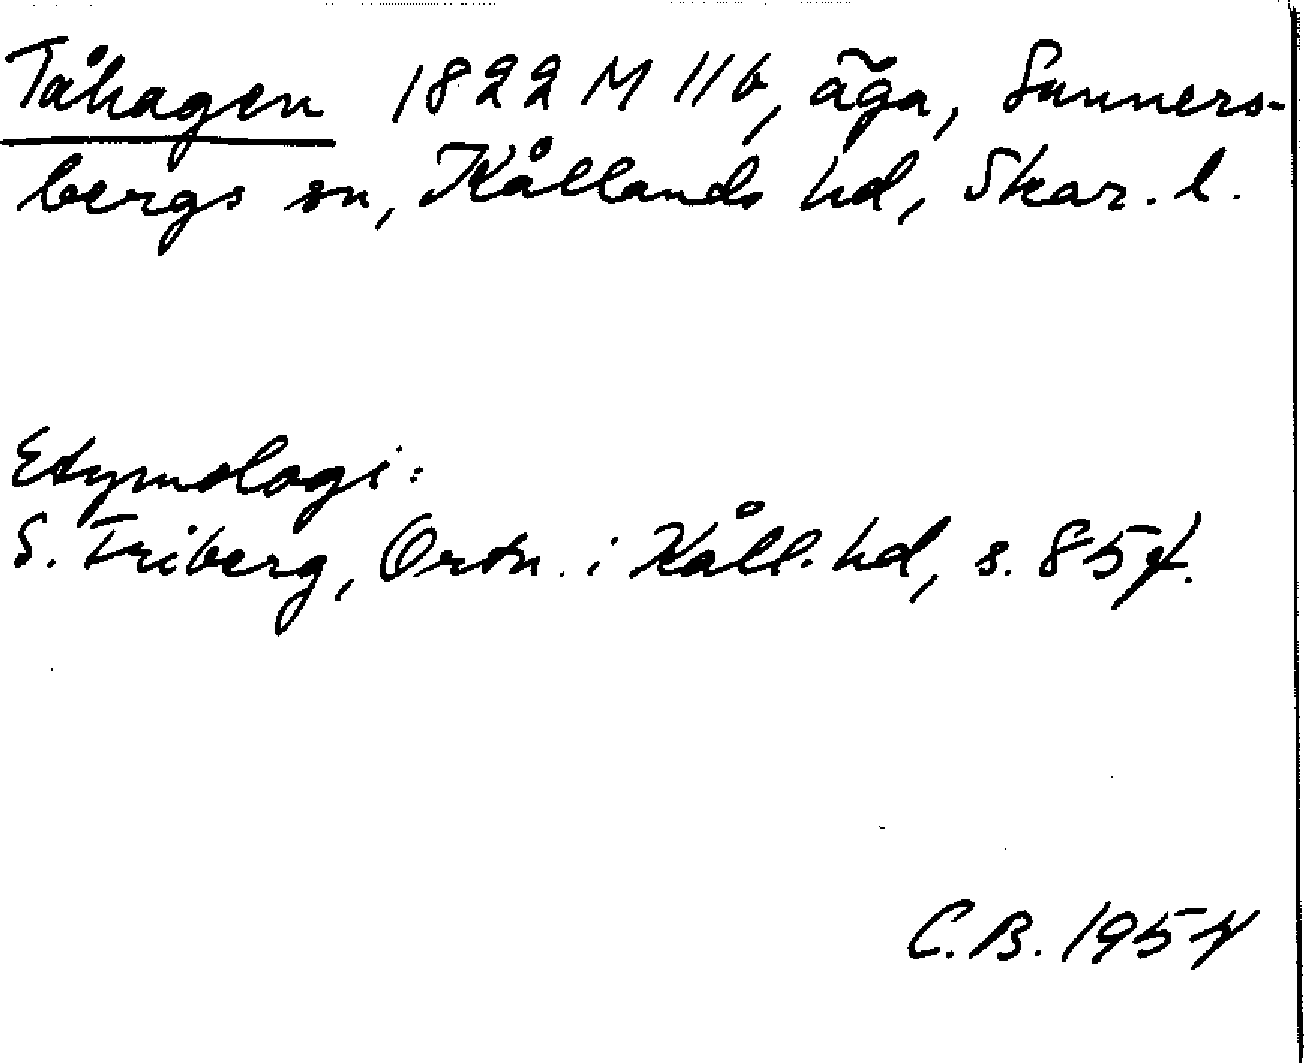 Tåhagen 1822 M 116, äga, Sunners-
bergs sn, Kållands hd, Skar. l.
Etymologi:
S. Friberg, Ortn. i Kåll. hd, s. 85 f.
C.B. 1954